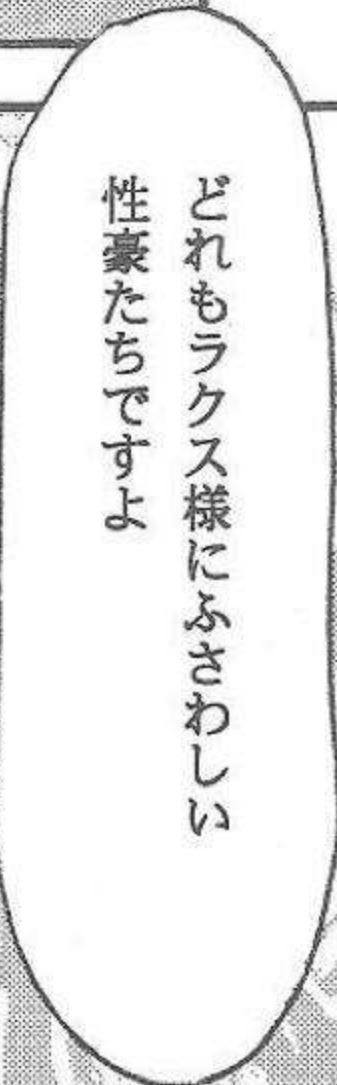 どれもラクス様にふさわしい
性豪たちですよ